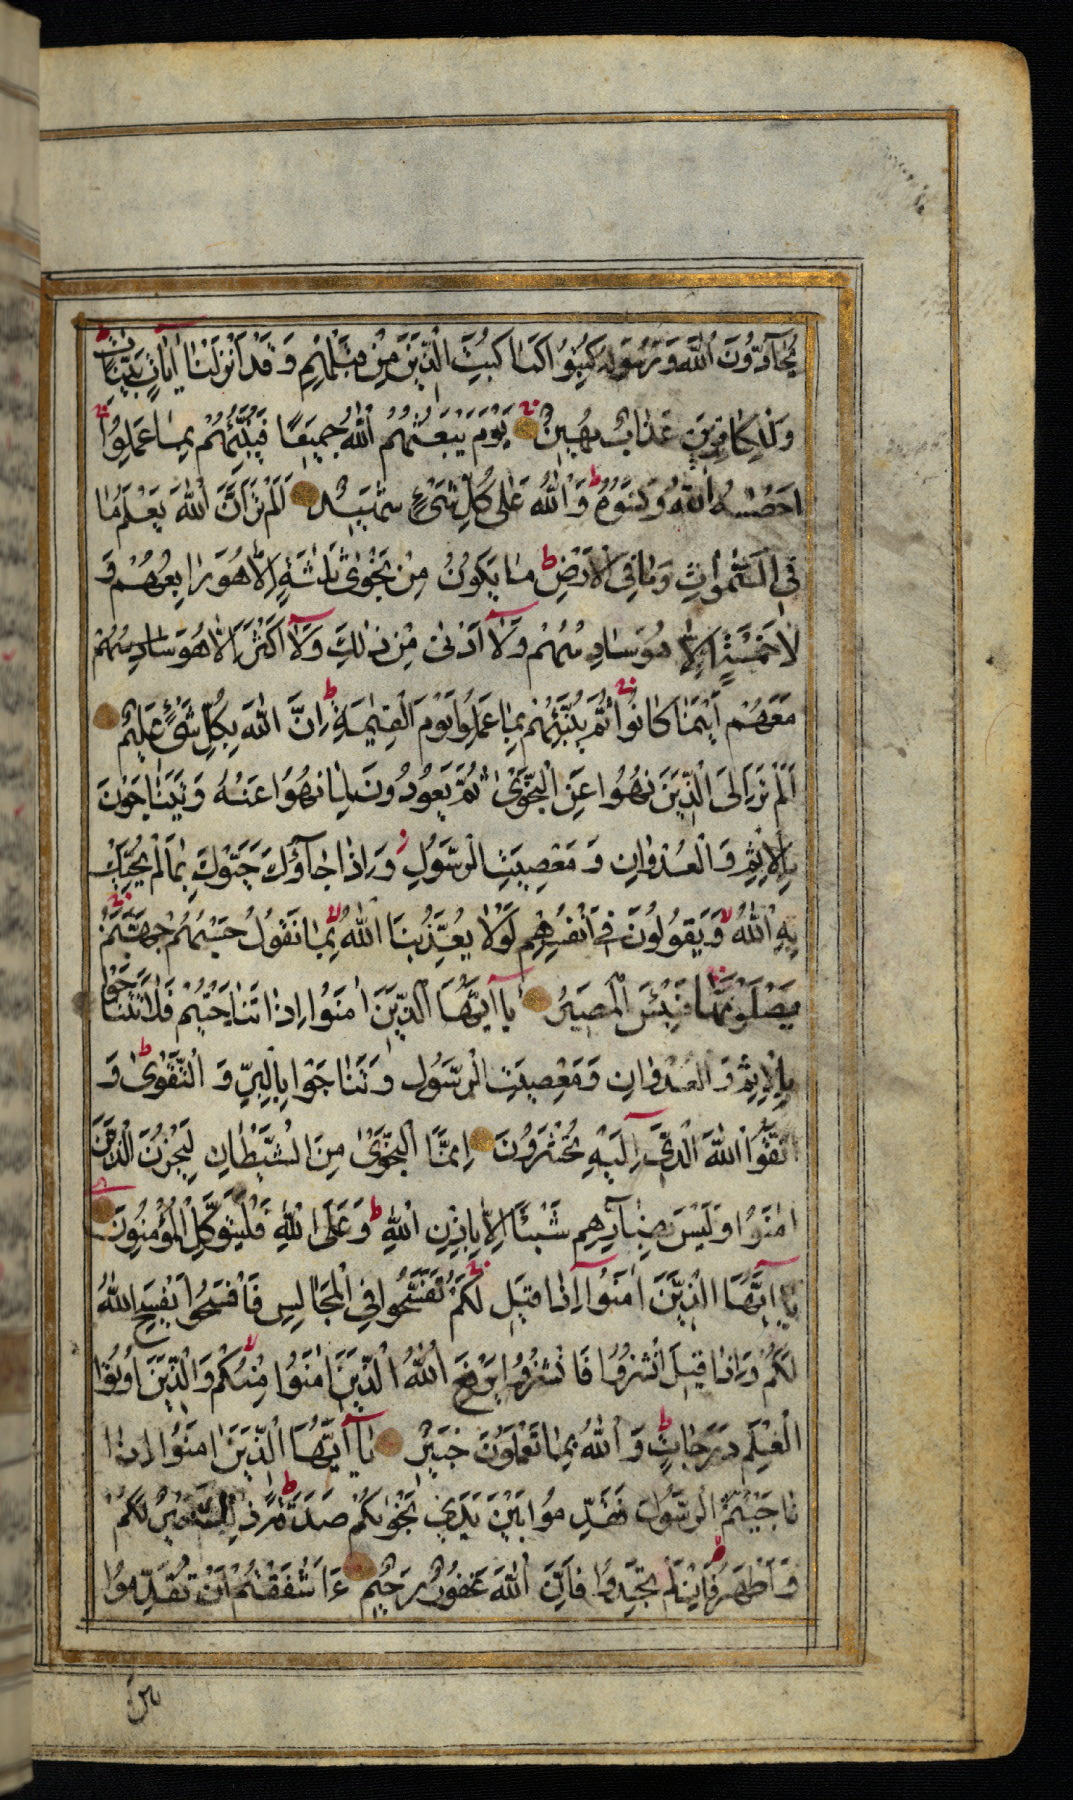 يُحَآدُّونَ اللّٰهَ وَرَسُولَهُ كُبِتُوا كَمَا كُبِتَ الَّذِينَ مِنْ قَبْلِهِمْ وَقَدْ اَنْزَلْنَا اٰيَاتٍ بَيِّنَاتٍ ط
وَلِلْكَافِرِينَ عَذَابٌ مُهِينٌ يَوْمَ يَبْعَثُهُمُ اللّٰهُ جَمِيعًا فَيُنَبِّئُهُمْ بِمَا عَمِلُوا
اَحْصٰيهُ اللّٰهُ وَنَسُوهُ ط وَاللّٰهُ عَلٰى كُلِّ شَيْءٍ شَهِيدٌ اَلَمْ تَرَ اَنَّ اللّٰهَ يَعْلَمُ مَا
فِي السَّمٰوَاتِ وَمَا فِي الْاَرْضِ ط مَا يَكُونُ مِنْ نَجْوٰى ثَلٰثَةٍ اِلَّا هُوَ رَابِعُهُمْ وَ
لَا خَمْسَةٍ اِلَّا هُوَ سَادِسُهُمْ وَلَآ اَدْنٰى مِنْ ذٰلِكَ وَلَآ اَكْثَرَ اِلَّا هُوَ سَادِسُهُمْ
مَعَهُمْ اَيْنَمَا كَانُوا ثُمَّ يُنَبِّئُهُمْ بِمَا عَمِلُوا يَوْمَ الْقِيٰمَةِ ط اِنَّ اللّٰهَ بِكُلِّ شَيْءٍ عَلِيمٌ
اَلَمْ تَرَ اِلَى الَّذِينَ نُهُوا عَنِ النَّجْوٰى ثُمَّ يَعُودُونَ لِمَا نُهُوا عَنْهُ وَيَتَنَاجَوْنَ
بِالْاِثْمِ وَالْعُدْوَانِ وَمَعْصِيَتِ الرَّسُولِ وَاِذَا جَآؤُكَ حَيَّوْكَ بِمَا لَمْ يُحَيِّكَ
بِهِ اللّٰهُ وَيَقُولُونَ فِي اَنْفُسِهِمْ لَوْلَا يُعَذِّبُنَا اللّٰهُ بِمَا نَقُولُ حَسْبُهُمْ جَهَنَّمُ
يَصْلَوْنَهَا فَبِئْسَ الْمَصِيرُ يَآ اَيُّهَا الَّذِينَ اٰمَنُوا اِذَا تَنَاجَيْتُمْ فَلَا تَتَنَاجَوْا
بِالْاِثْمِ وَالْعُدْوَانِ وَمَعْصِيَتِ الرَّسُولِ وَتَنَاجَوْا بِالْبِرِّ وَالتَّقْوٰى ط وَ
اتَّقُوا اللّٰهَ الَّذِي اِلَيْهِ تُحْشَرُونَ اِنَّمَا النَّجْوٰى مِنَ الشَّيْطَانِ لِيَحْزُنَ الَّذِينَ
اٰمَنُوا وَلَيْسَ بِضَآرِّهِمْ شَيْئًا اِلَّا بِاِذْنِ اللّٰهِ ط وَعَلَى اللّٰهِ فَلْيَتَوَكَّلِ الْمُؤْمِنُونَ
يَآ اَيُّهَا الَّذِينَ اٰمَنُوا اِذَا قِيلَ لَكُمْ تَفَسَّحُوا فِي الْمَجَالِسِ فَافْسَحُوا يَفْسَحِ اللّٰهُ
لَكُمْ وَاِذَا قِيلَ انْشُزُوا فَانْشُزُوا يَرْفَعِ اللّٰهُ الَّذِينَ اٰمَنُوا مِنْكُمْ وَالَّذِينَ اُوتُوا
الْعِلْمَ دَرَجَاتٍ ط وَاللّٰهُ بِمَا تَعْمَلُونَ خَبِيرٌ يَآ اَيُّهَا الَّذِينَ اٰمَنُوا اِذَا
نَاجَيْتُمُ الرَّسُولَ فَقَدِّمُوا بَيْنَ يَدَيْ نَجْوٰيكُمْ صَدَقَةً ط ذٰلِكَ خَيْرٌ لَكُمْ
وَاَطْهَرُ ط فَاِنْ لَمْ تَجِدُوا فَاِنَّ اللّٰهَ غَفُورٌ رَحِيمٌ ءَاَشْفَقْتُمْ اَنْ تُقَدِّمُوا
بين